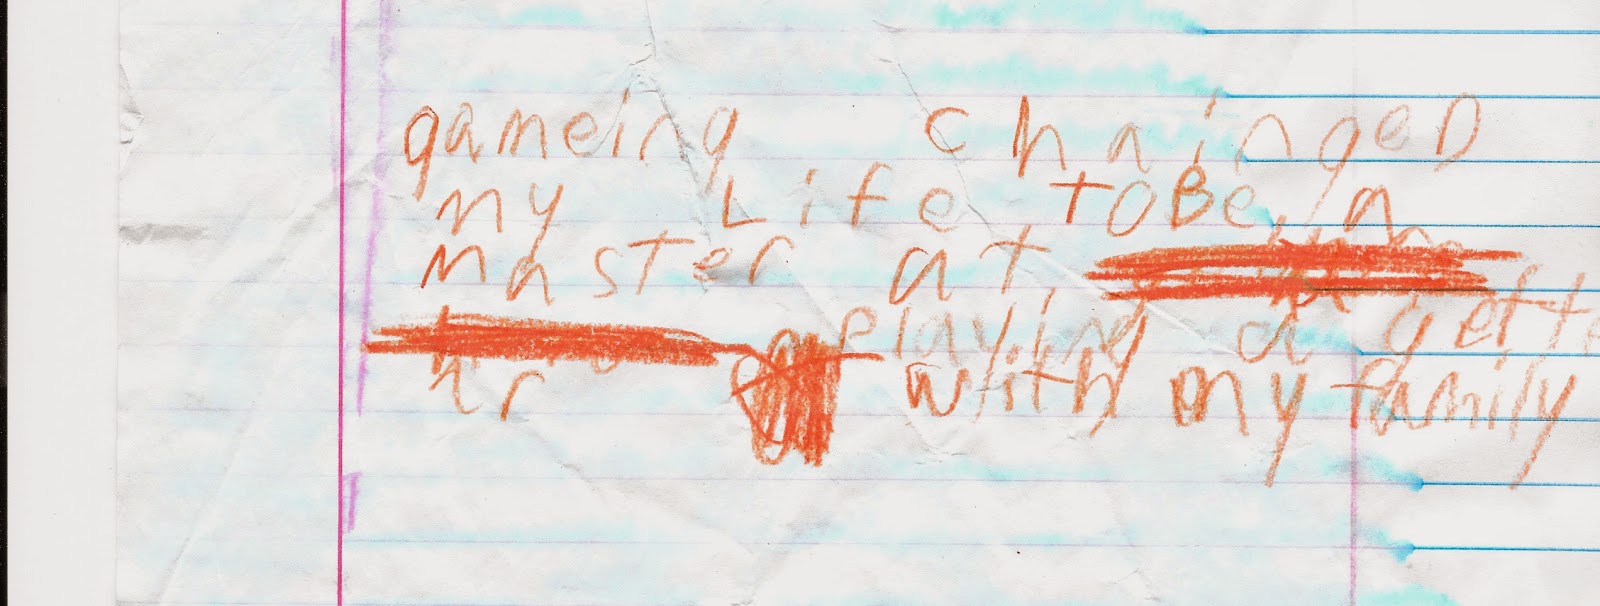 gameing chainged
my Life toBe, a
master at,
playing a gette
hr with my family